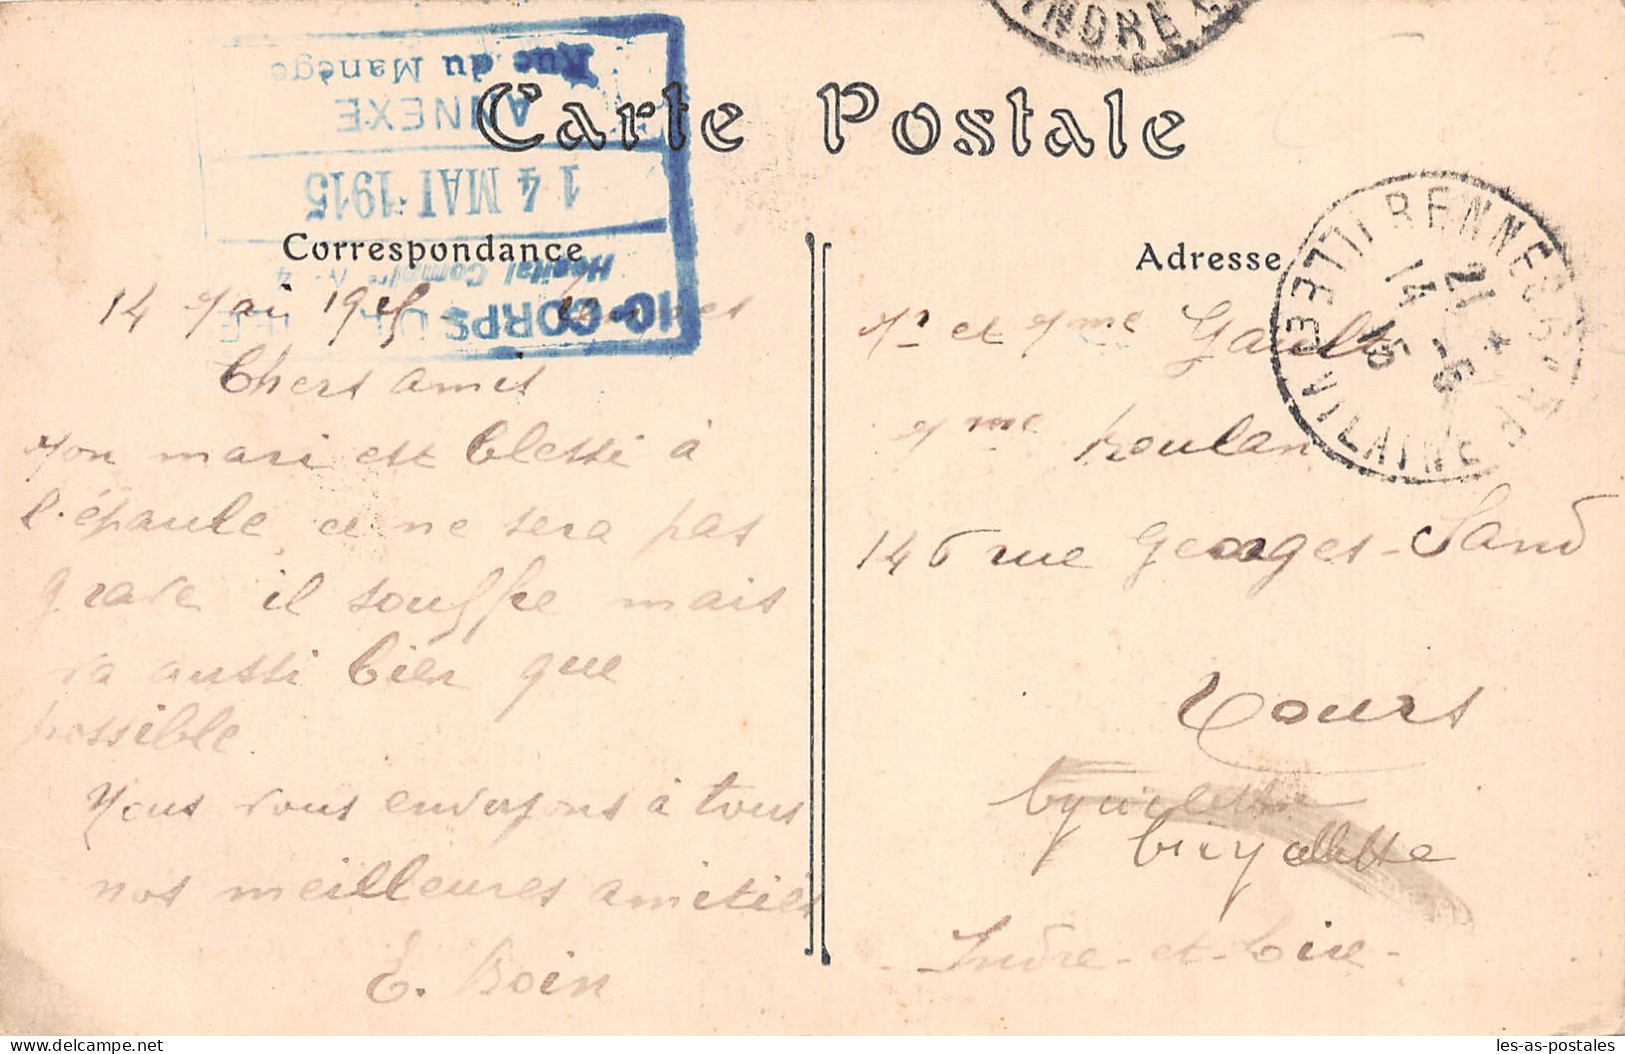 Carte Postale
Correspondance
Adresse
INDRE
Rue du Manège
ANNEXE
14 MAI 1915
Hôpital Comp^re N° 4
CORPS
RENNES
ILLE ET VILAINE
21
14 -5
15
14 Mai 1915 Rennes
Chers amis
Mon mari est blessé à
l'épaule, ce ne sera pas
grave il souffre mais
va aussi bien que
possible
Nous vous envoyons à tous
nos meilleures amitiés
E. Boin
Mr et Mme Gault
Mme Roulan
146 rue Georges-Sand
Tours
bycielette
bicyclette
- Indre-et-Loire -
les-as-postales
delcampe.net